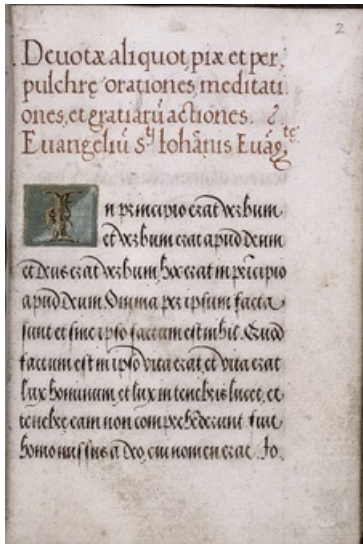 2
Deuotæ aliquot piæ et per,
pulchrę orationes, meditati
ones, et gratiarũ actiones.
Euangeliũ Iohãnis Euãg
In principio erat verbum
et verbum erat apud deum
et deus erat verbum, hoc erat in principio
apud deum. Omnia per ipsum facta
sunt et sine ipso factum est nihil. Quod
factum est in ipso vita erat, et vita erat
lux hominum, et lux in tenebris lucet, et
tenebrę eam non comprehẽderunt fuit
homo missus a deo, cui nomen erat Io,